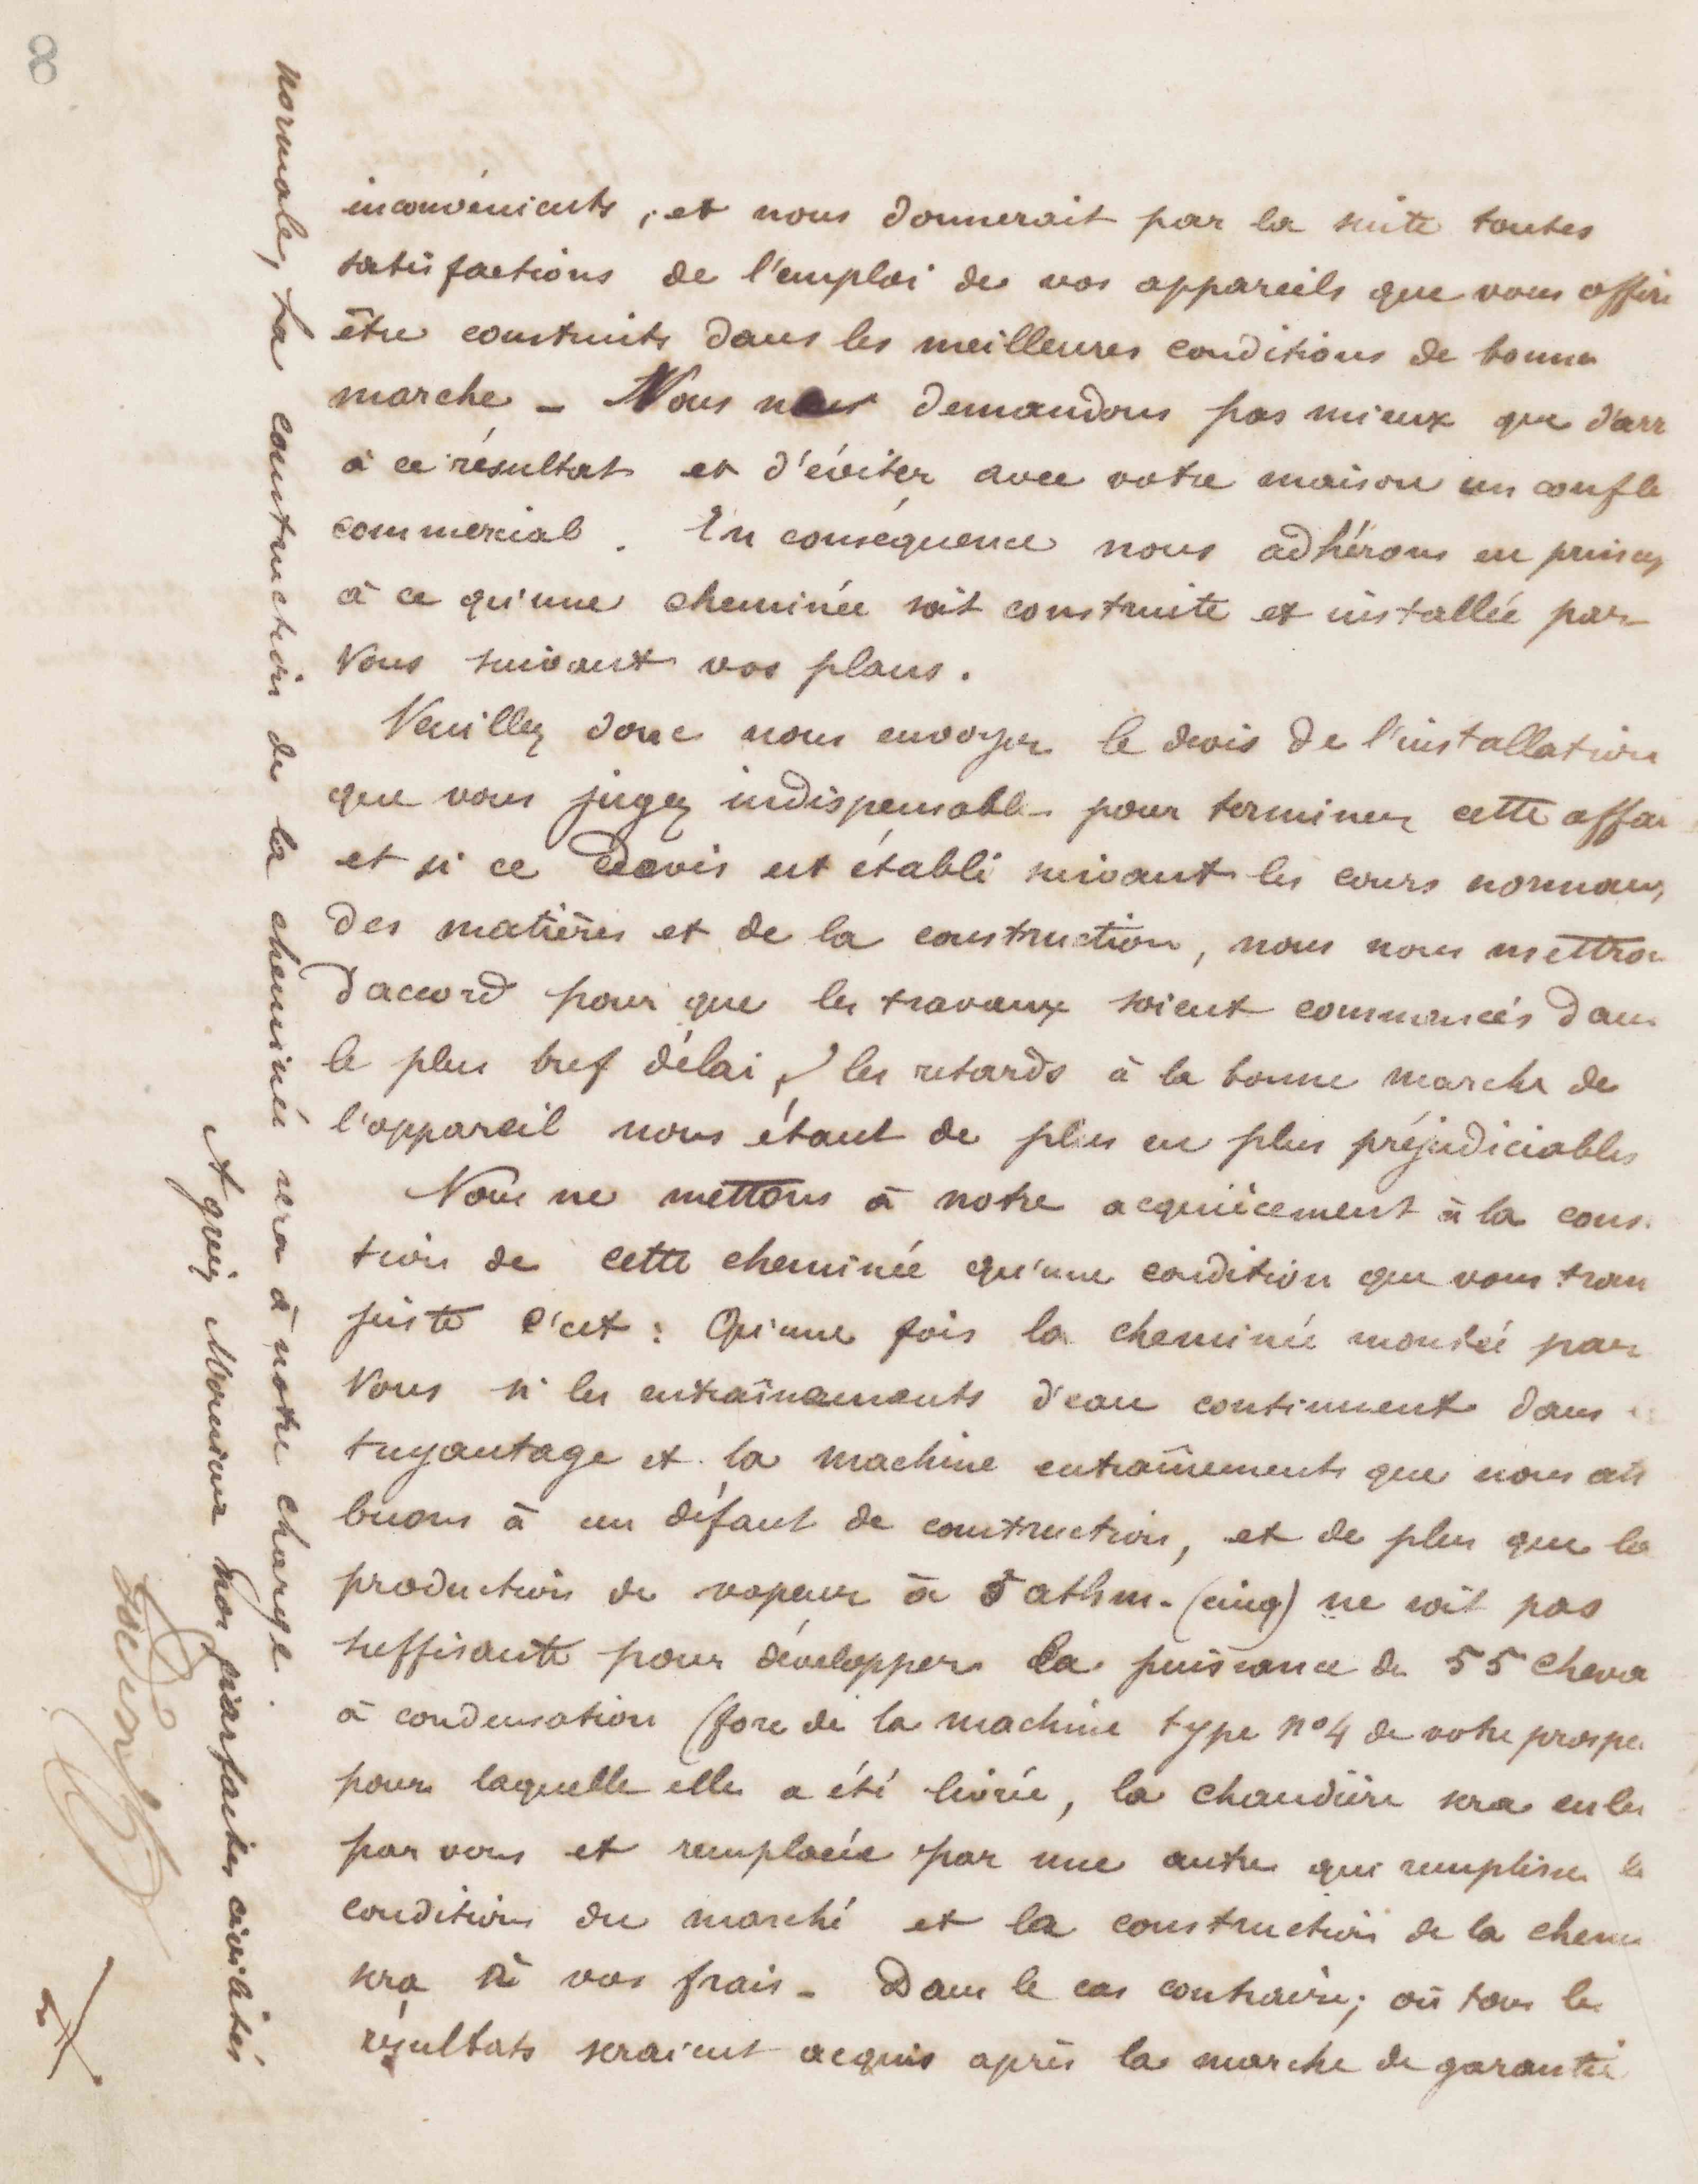 8
inconvénients, et nous donnerait par la suite toutes
satisfactions de l'emploi de vos appareils que vous affir
être construits dans les meilleures conditions de bonne
marche - Nous demandons pas mieux que d'arr
à ce résultat et d'éviter avec votre maison un confli
commercial. En conséquence nous adhérons en princip
à ce qu'une cheminée soit construite et installée par
Vous suivant vos plans.
Veuillez donc nous envoyer le devis de l'installation
que vous jugez indispensable pour terminer cette affai
et si ce devis est établi suivant les cours normaux
des matières et de la construction, nous nous mettron
d'accord pour que les travaux soient commencés dans
le plus bref délai, les retards à la bonne marche de
l'appareil nous étant de plus en plus préjudiciables
Nous ne mettons à notre acquiècement à la cons
tion de cette cheminée qu'une condition que vous trou
juste c'est : Qu'une fois la cheminée montée par
Vous si les entraînements d'eau continuent dans
tuyautage et la machine entraînements que nous att
buons à un défaut de construction, et de plus que la
production de vapeur à 5 athm. (cinq) ne soit pas
suffisante pour développer la puissance de 55 cheva
à condensation (force de la machine type n° 4 de votre prospe
pour laquelle elle a été livrée, la chaudière sera enle
par vous et remplacée par une autre qui remplisse le
conditions du marché et la construction de la chemi
sera à vos frais - Dans le cas contraire; où tous les
résultats seraient acquis après la marche de garantie
normale, la construction de la cheminée sera à notre charge.
Agréez Monsieur nos parfaites civilités